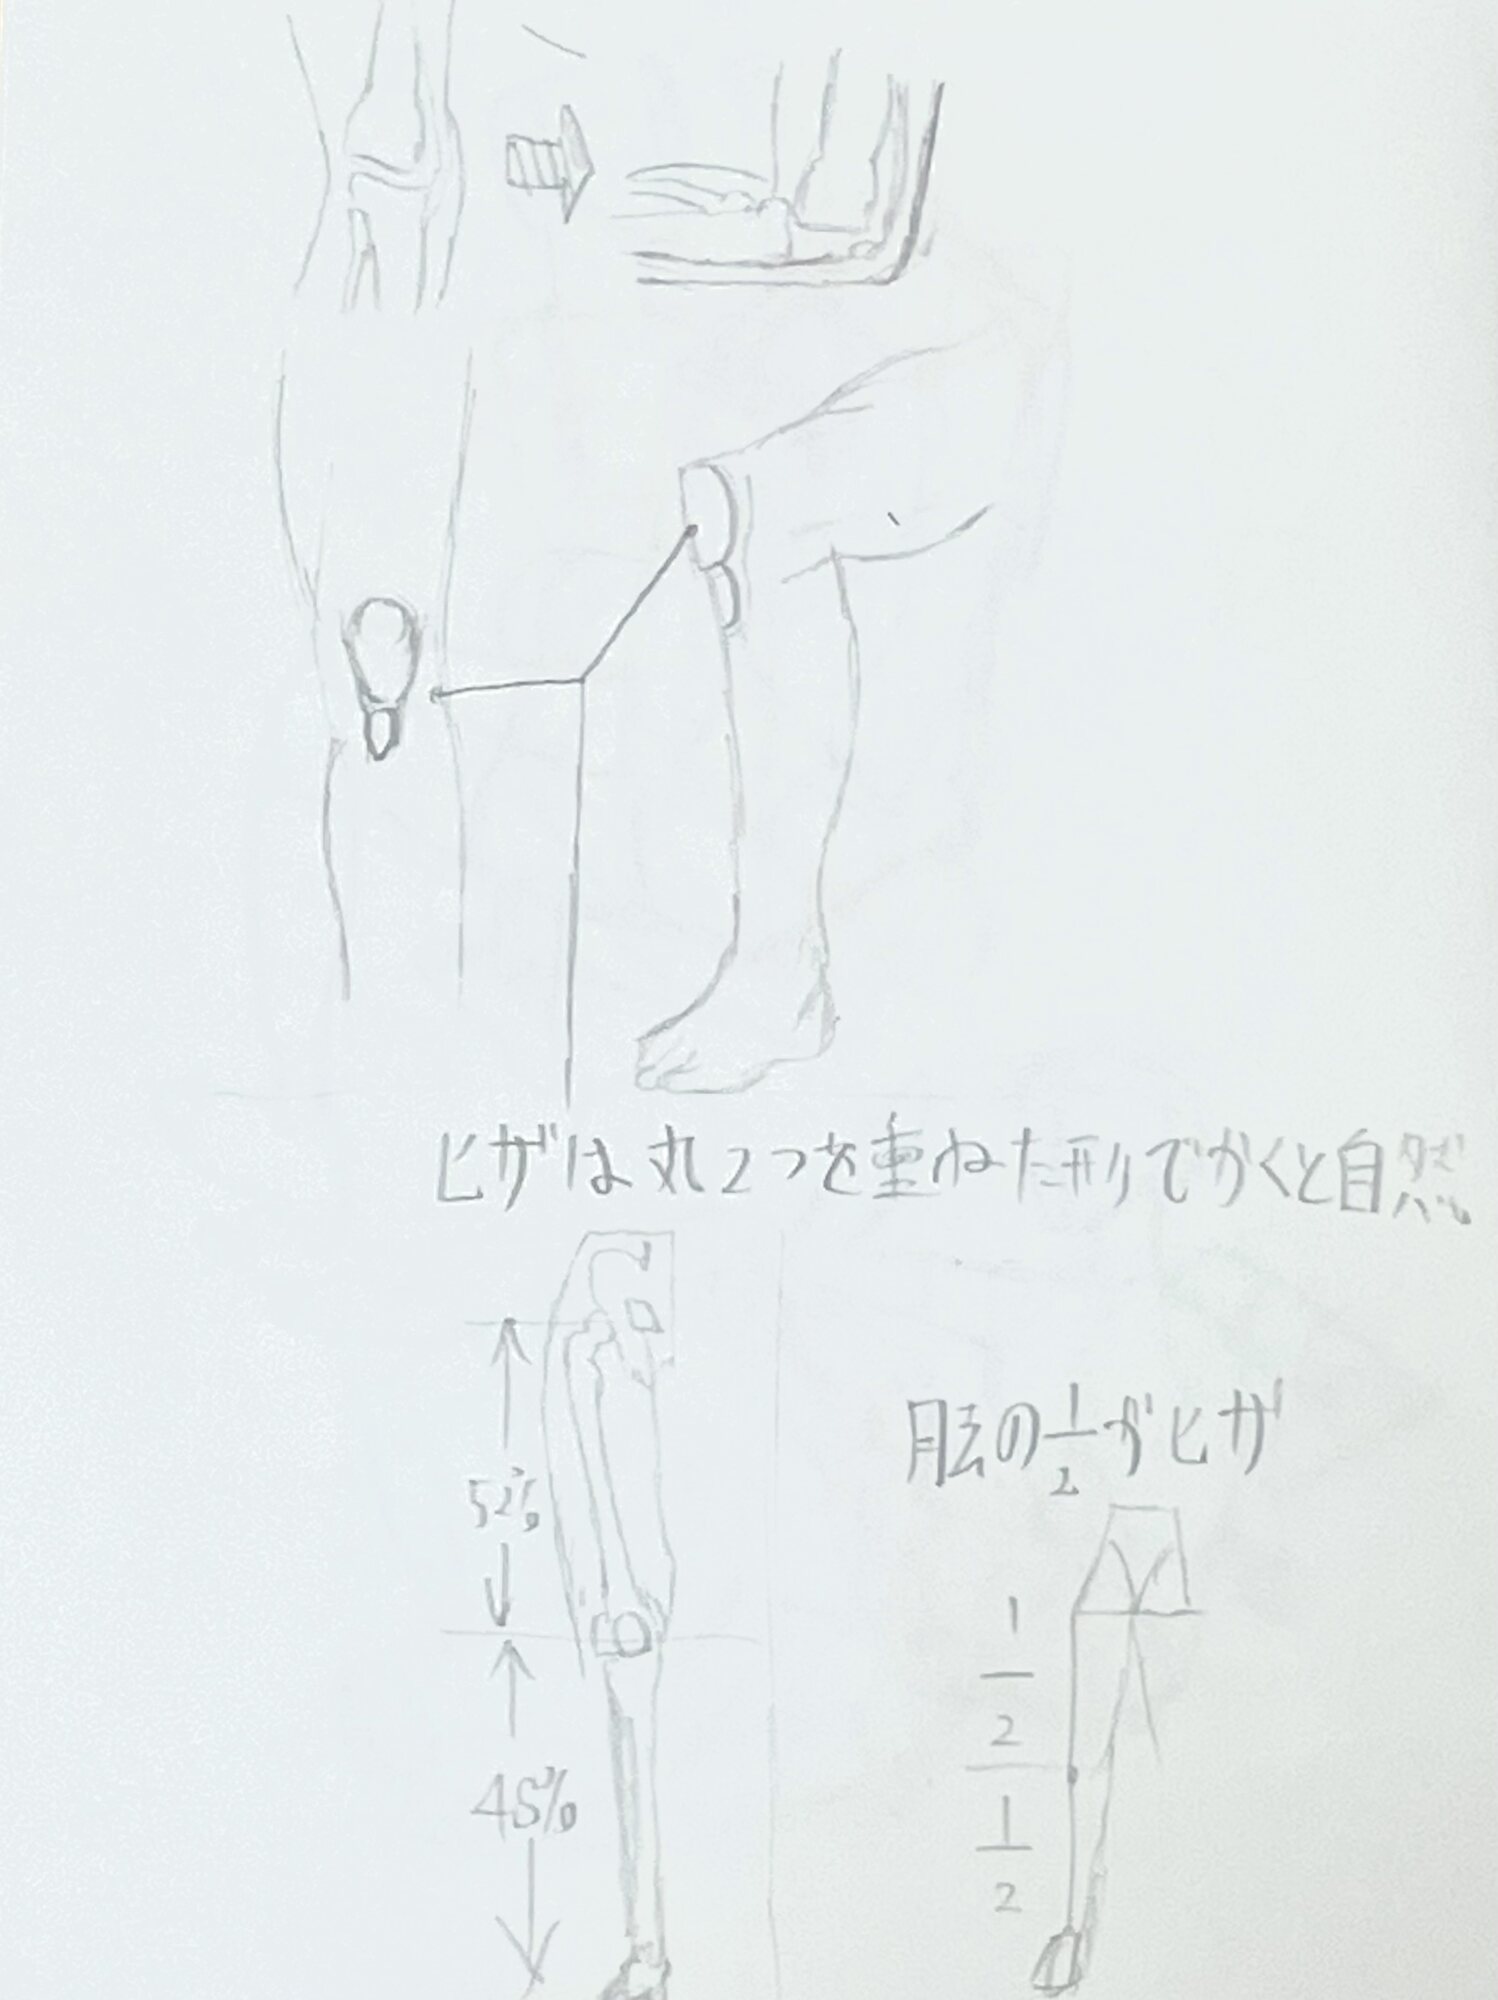 ヒザは丸2つを重ねた形でかくと自然
52%
48%
胘の1/2がヒザ
1/2
1/2